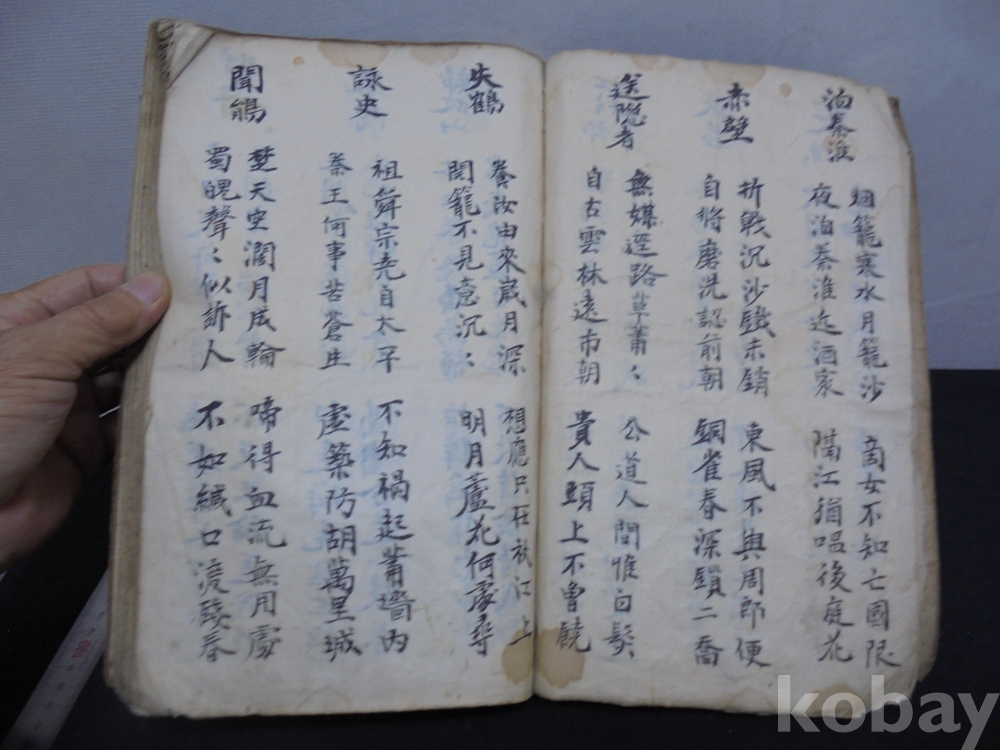 泊秦淮
烟籠寒水月籠沙 商女不知亡國限
夜泊秦淮近酒家 隔江猶唱後庭花
赤壁
折戟沉沙鐵未銷 東風不與周郎便
自將磨洗認前朝 銅雀春深鎖二喬
送隱者
無媒逕路草蕭〻 公道人間惟白髮
自古雲林遠市朝 貴人頭上不曾饒
失鶴
養汝由來歲月深 想應只在秋江上
開籠不見意沉〻 明月蘆花何處尋
詠史
祖舜宗堯自太平 不知禍起蕭墻內
秦王何事苦蒼生 虛築防胡萬里城
聞鵑
楚天空濶月成輪 啼得血流無用處
蜀魄聲〻似訴人 不如緘口渡殘春
kobay